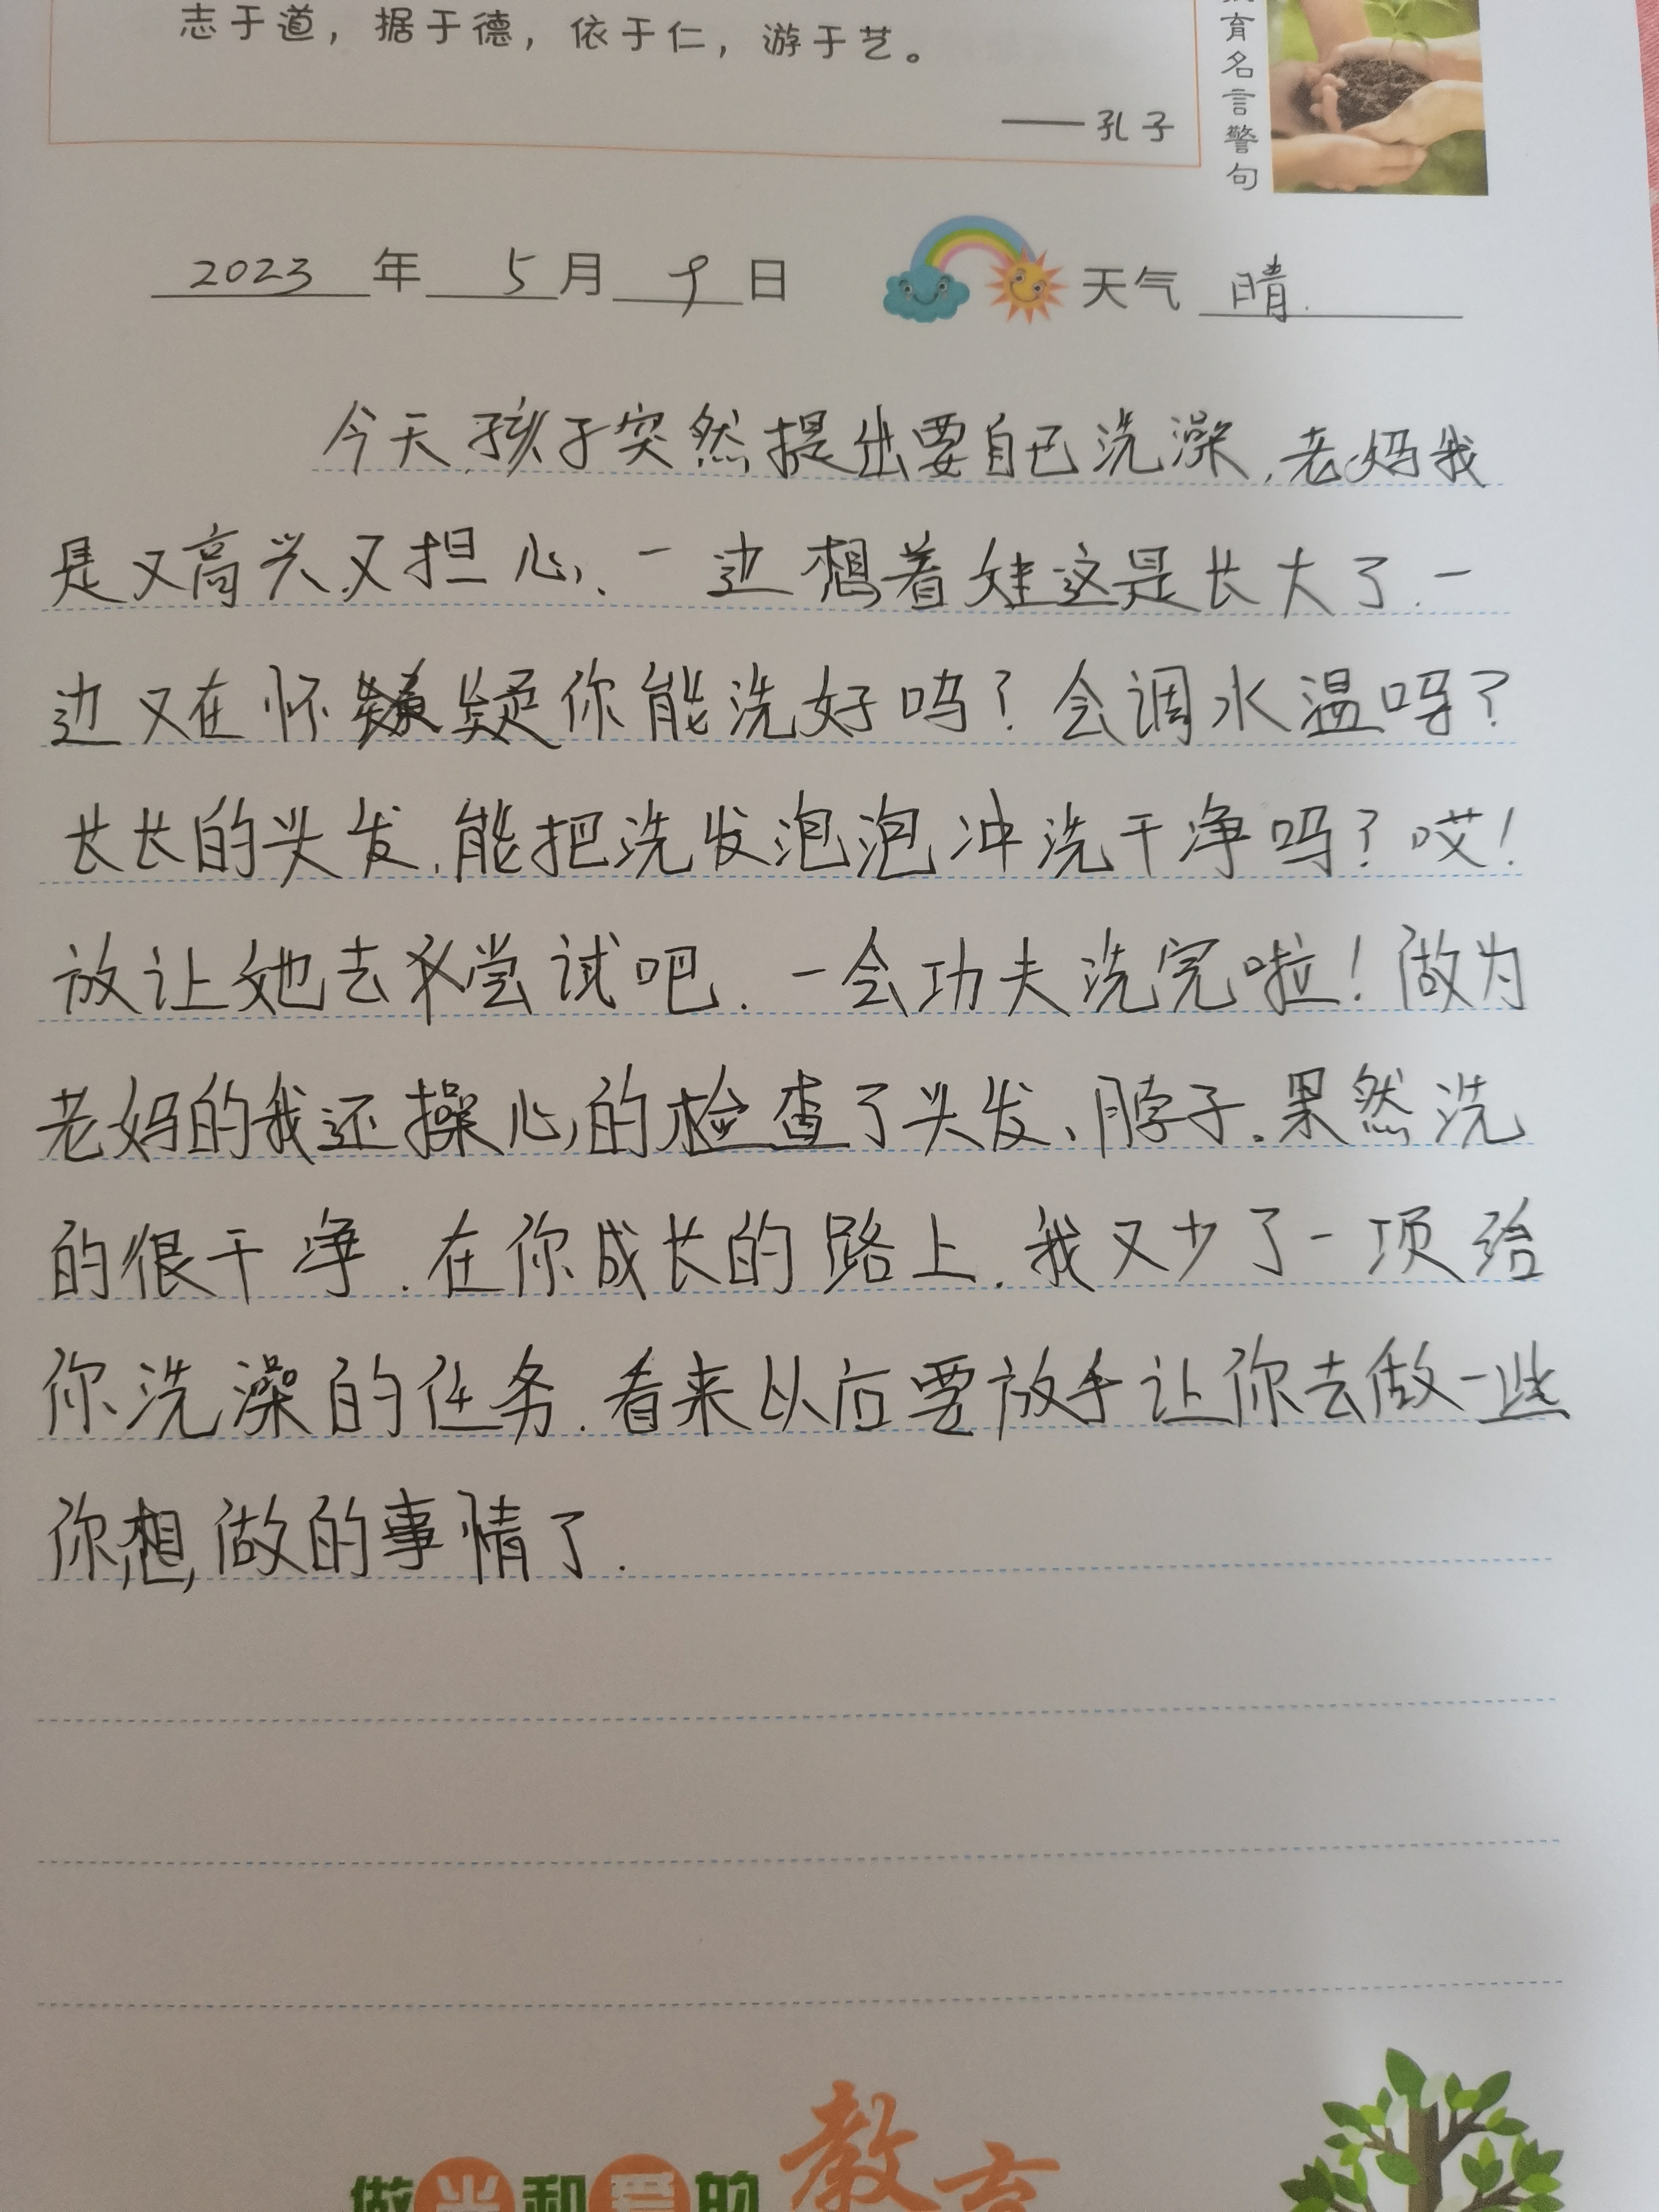 志于道，据于德，依于仁，游于艺。
——孔子
育名言警句
2023年5月9日 天气 晴.
今天,孩子突然提出要自己洗澡,老妈我
是又高兴又担心、一边想着娃这是长大了.一
边又在怀疑你能洗好吗？会调水温吗？
长长的头发.能把洗发泡泡冲洗干净吗？哎！
放让她去尝试吧.一会功夫洗完啦！做为
老妈的我还操心的检查了头发、脖子.果然洗
的很干净.在你成长的路上.我又少了一项给
你洗澡的任务.看来以后要放手让你去做一些
你想,做的事情了.
做光和爱的教育